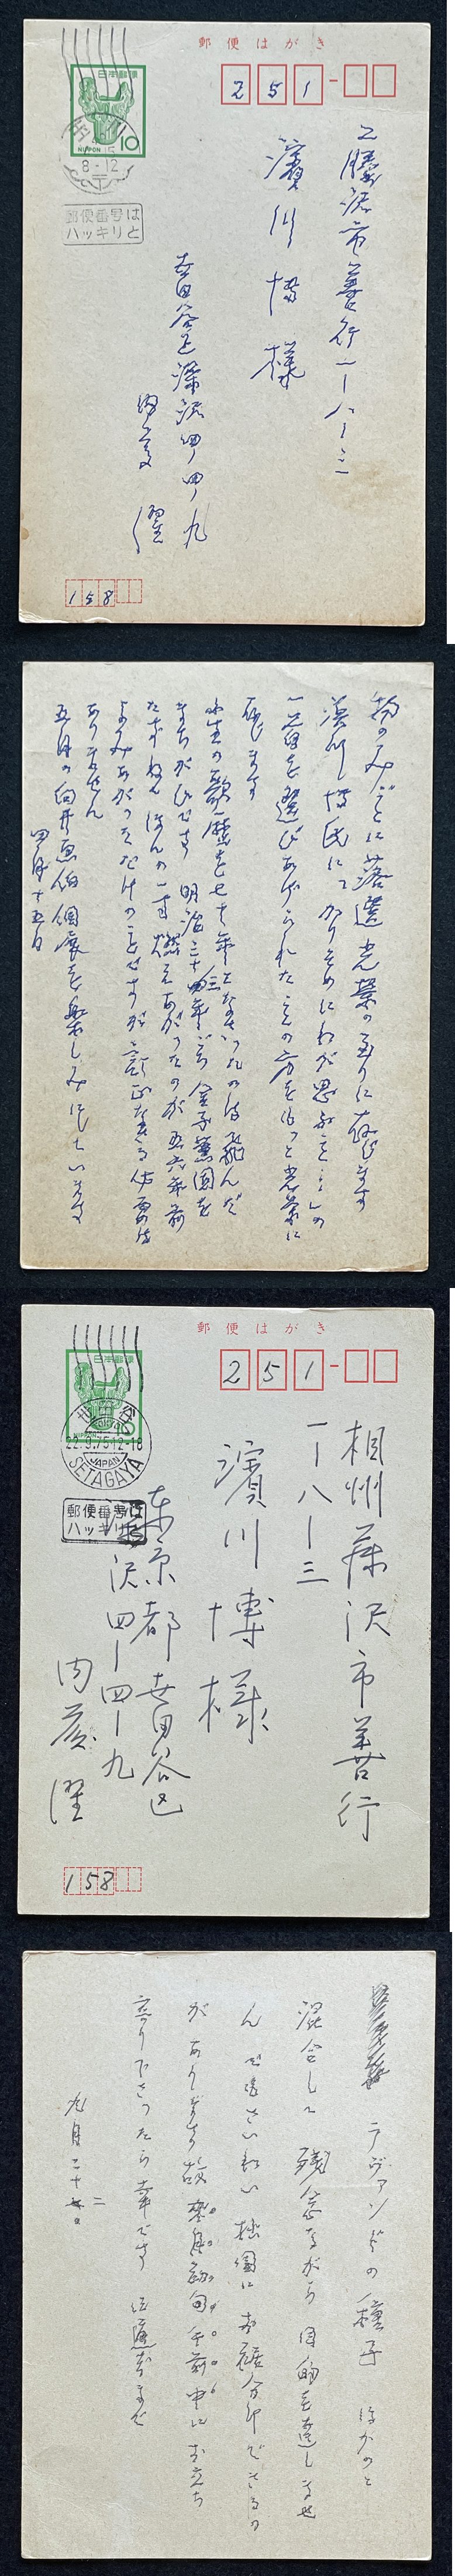 郵便はがき
日本郵便
NIPPON
10
8-12
郵便番号は
ハッキリと
251
藤沢市善行一ー八ー三
濱川博様
世田谷区深沢四ノ四ノ九
内藤 濯
158
物のみごとに落選 光栄の至りに存じます
濱川博氏にて かりそめにわが思ふこと の
一首を選びあげられた この方をもっと光栄に
存じます
小生の歌歴を七十年となさったのは飛んだ
まちがひです 明治三十四年ごろ金子薫園を
たずね ほんの一時燃えあがったのが 五六年前
よみあがっただけのことですが 訂正なさる必要は
ありません
五月の向井画伯個展を楽しみにしています
四月十五日
郵便はがき
日本郵便
世田谷
TOKYO
22.9.75 12-18
JAPAN
SETAGAYA
郵便番号は
ハッキリ
251
相州藤沢市善行
一ー八ー三
濱川博様
東京都世田谷区
深沢四ー四ー九
内藤 濯
158
ラヴァンドの種子 ほかのと
混合して 残念ながら目的を達しませ
ん でもさいわい 拙園に お裾分けできるの
があります 故 午前中にお立ち
寄り下さったら幸です
九月二十二日